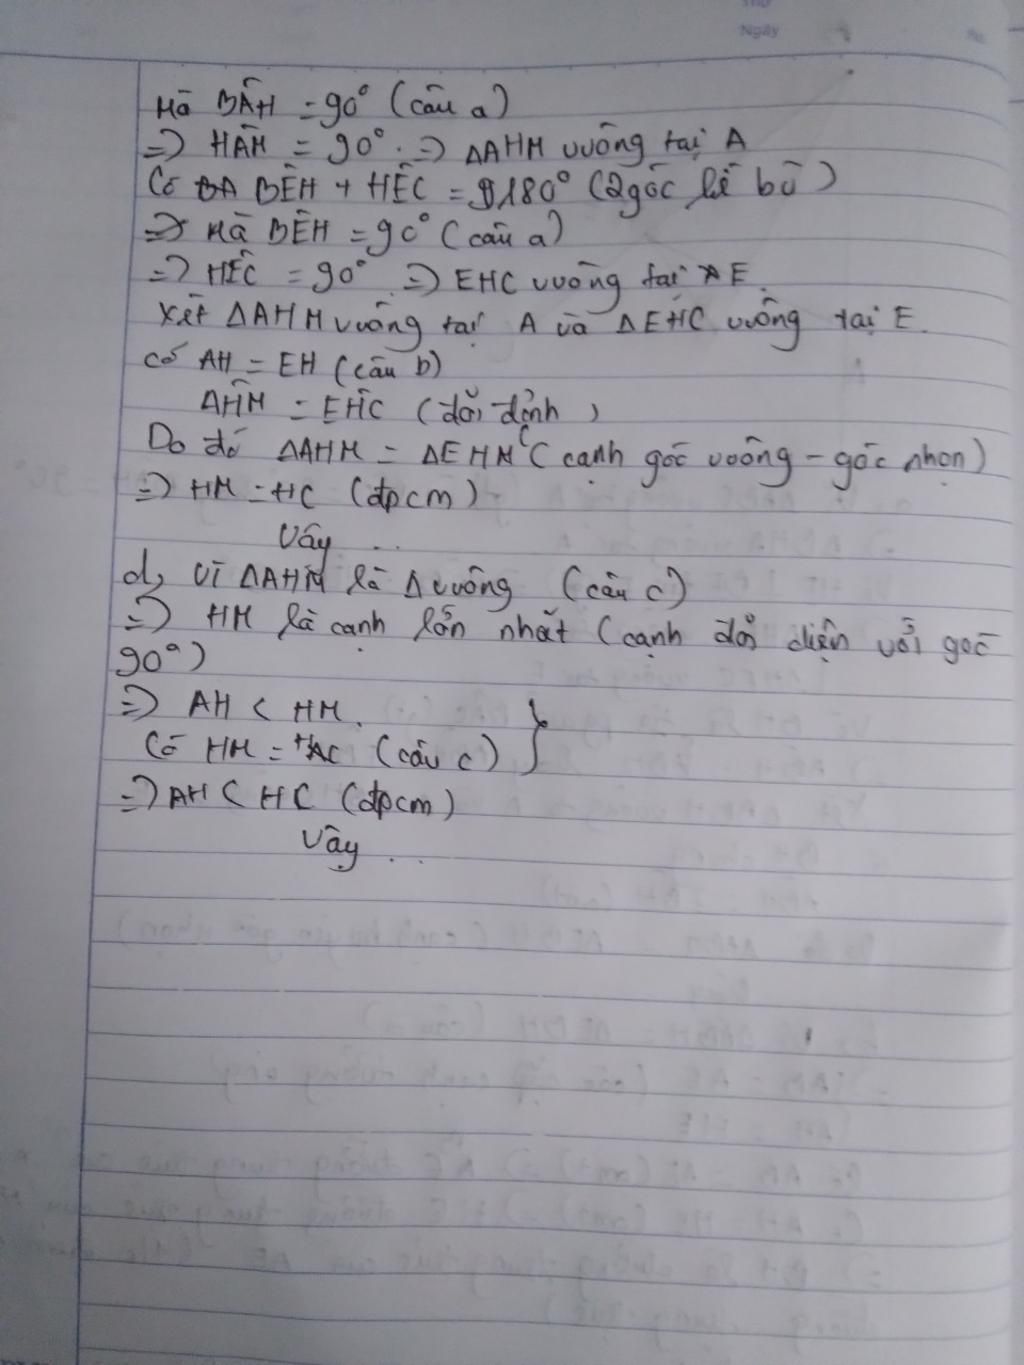 Thứ
Ngày No.
Mà BÂH = 90° (câu a)
=> HÂM = 90° => ΔAHM vuông tại A
Có BÊH + HÊC = 180° (2 góc kề bù)
=> Mà BÊH = 90° (câu a)
=> HÊC = 90° => EHC vuông tại E.
Xét ΔAHM vuông tại A và ΔEHC vuông tại E.
Có AH = EH (câu b)
AĤM = EĤC (đối đỉnh)
Do đó ΔAHM = ΔEHC (cạnh góc vuông - góc nhọn)
=> HM = HC (đpcm)
Vậy ..
d, Vì ΔAHM là Δ vuông (câu c)
=> HM là cạnh lớn nhất (cạnh đối diện với góc
90°)
=> AH < HM. }
Có HM = HC (câu c)
=> AH < HC (đpcm)
Vậy ..